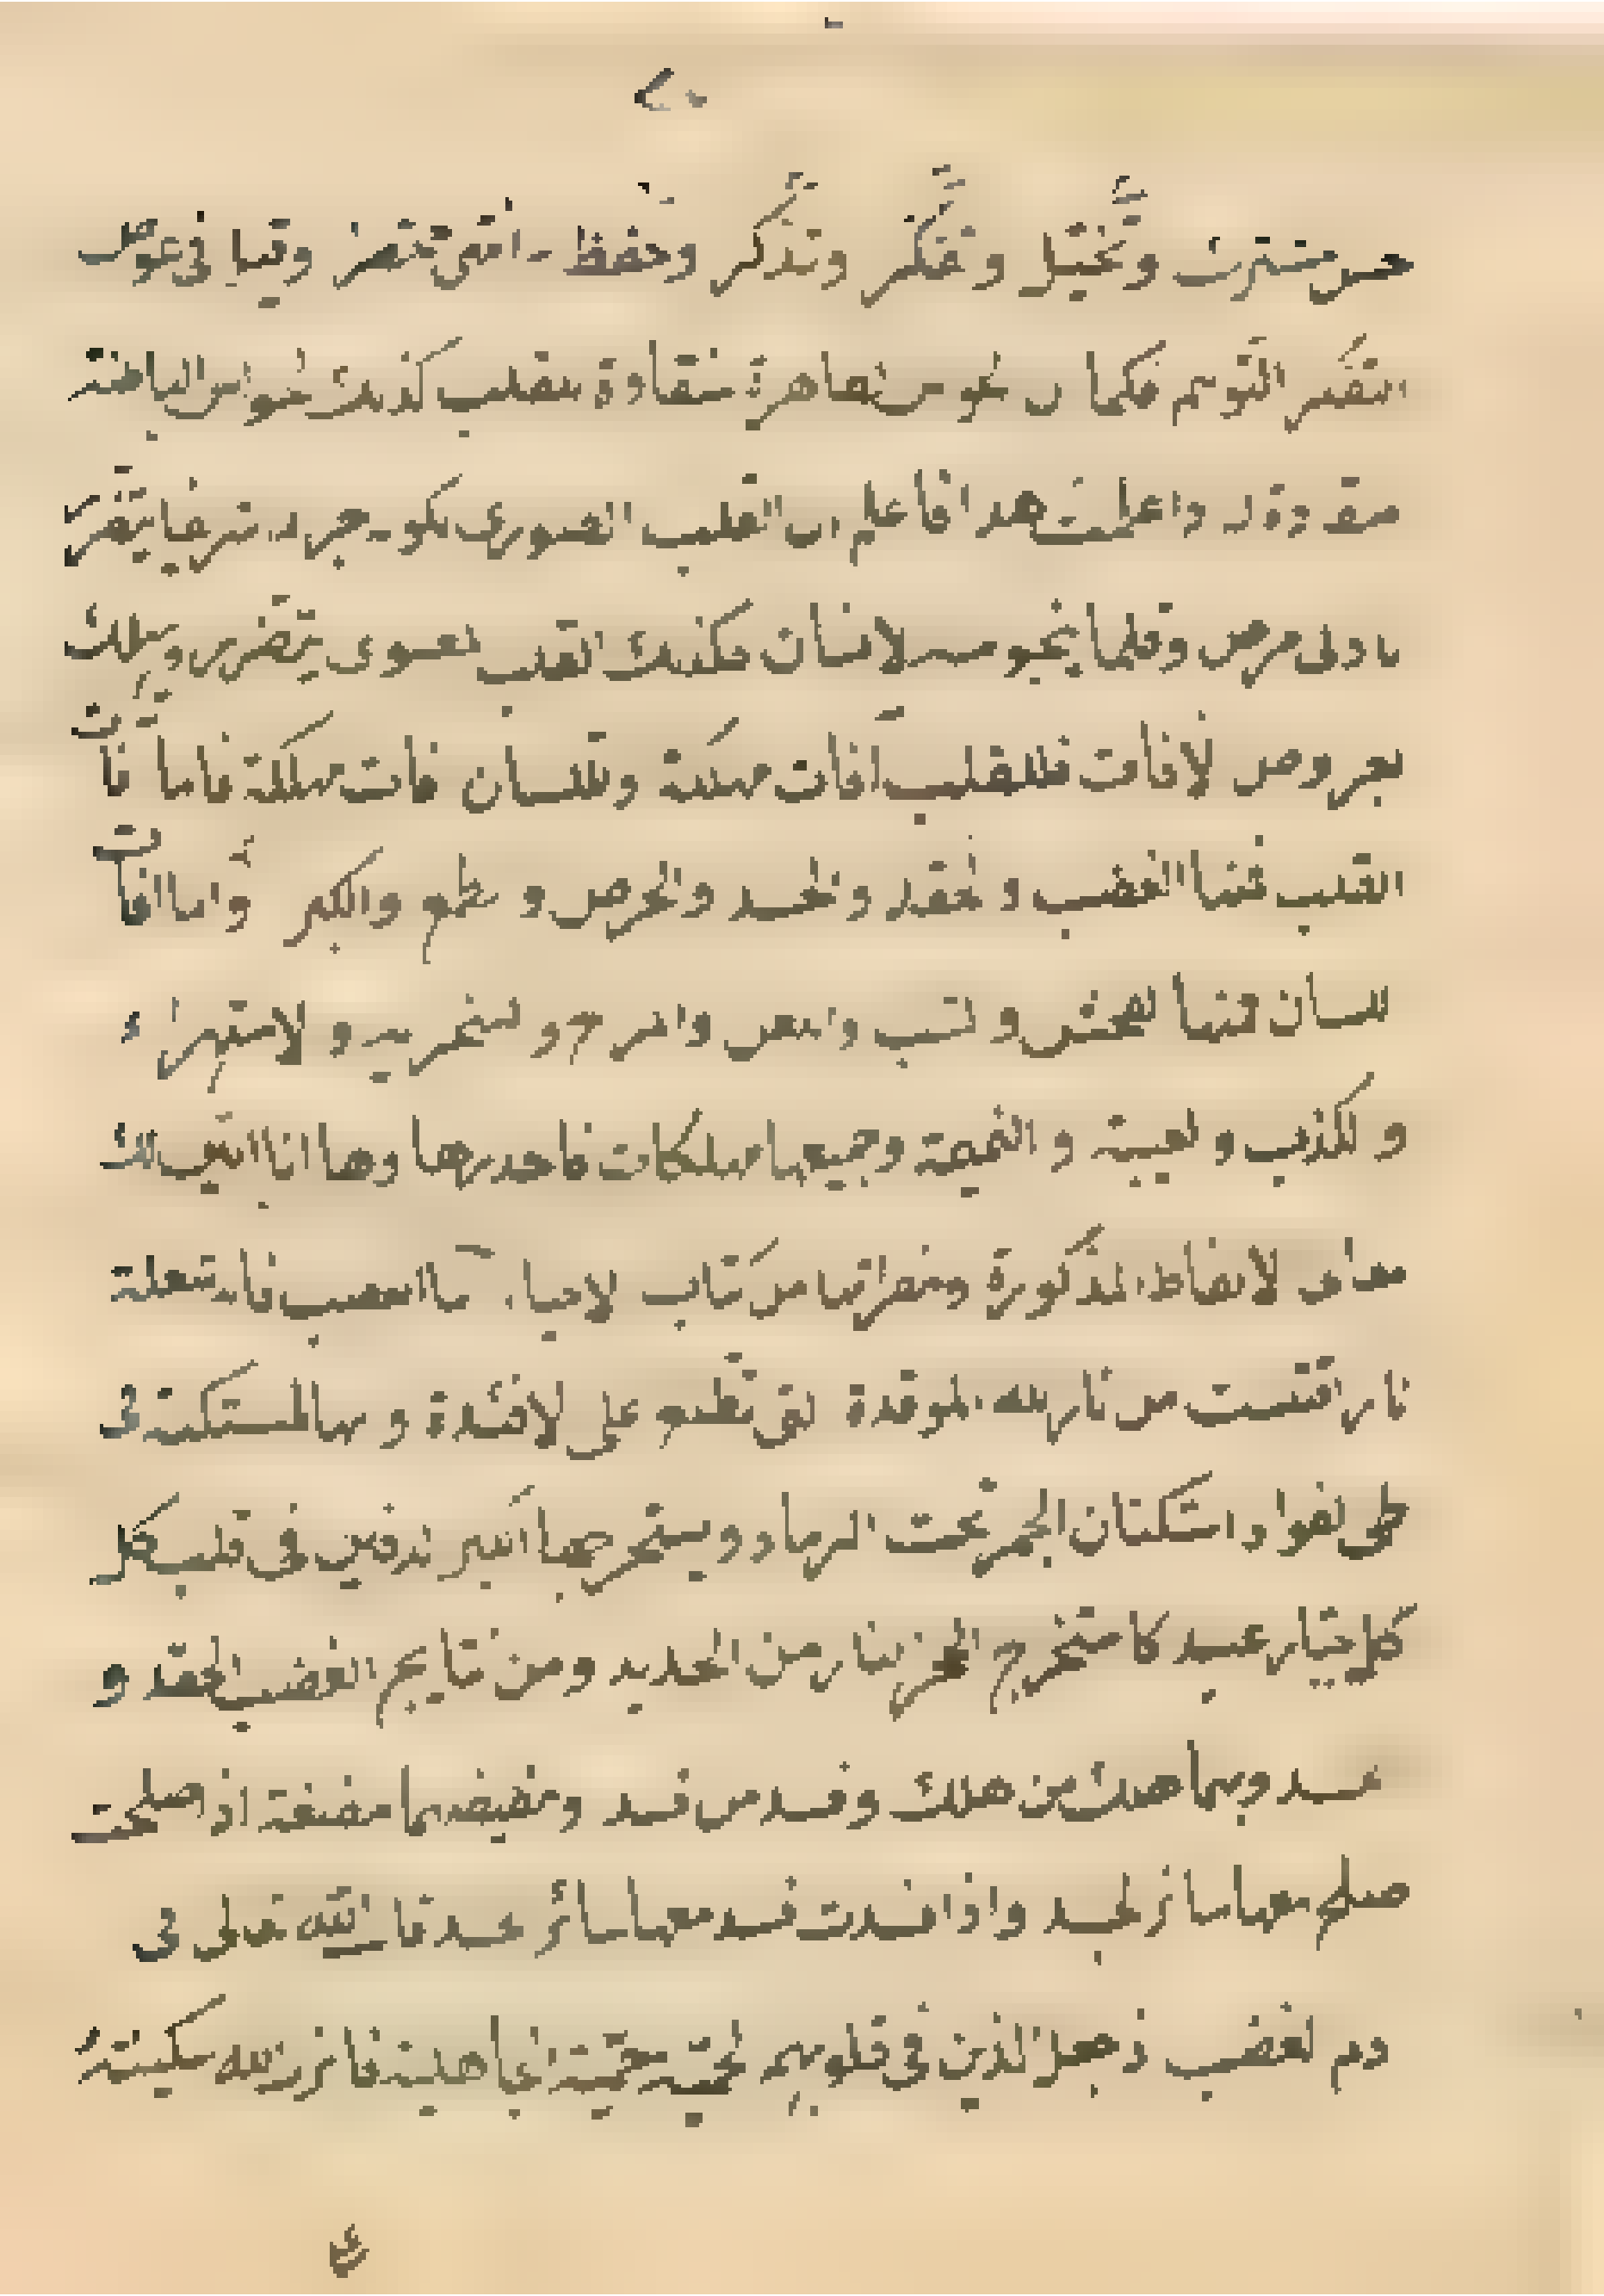 حس مشترك وتخيّل وتفكّر وتذكّر وحفظ انتهى مختصرا وقيل فى عوض
التفكر التوهم فكما ان الحواس الظاهرة منقادة للقلب كذلك الحواس الباطنة
منقادة له واذا علمت هذا فاعلم ان القلب الصورى يكون جرمه شريفا يتضرر
بادنى مرض وقلما ينجو منه الانسان فكذلك القلب المعنوى يتضرر ويهلك
بعروض الآفات فللقلب آفات مهلكة وللسان آفات مهلكة فاما آفات
القلب فمنها الغضب والحقد والحسد والحرص والطمع والكبر واما آفات
اللسان فمنها الفحش والسب واللعن والمزاح والسخرية والاستهزاء
والكذب والغيبة والنميمة وجميعها مهلكات فاحذرها وها انا ابين لك
معانى الالفاظ المذكورة ومضراتها من كتاب الاحياء اما الغضب فانه شعلة
نار اقتبست من نار الله الموقدة التى تطلع على الافئدة وانها لمستكنة فى
طى الفؤاد استكنان الجمر تحت الرماد ويستخرجها الكبر الدفين فى قلب كل
كل جبار عنيد كاستخراج الحجر النار من الحديد ومن نتايج الغضب الحقد و
الحسد وبهما هلك من هلك وفسد من فسد ومفيضهما مضغة اذا صلحت
صلح معها سائر الجسد واذا فسدت فسد معها سائر الجسد قال الله تعالى فى
ذم الغضب اذ جعل الذين فى قلوبهم الحمية حمية الجاهلية فانزل الله سكينته